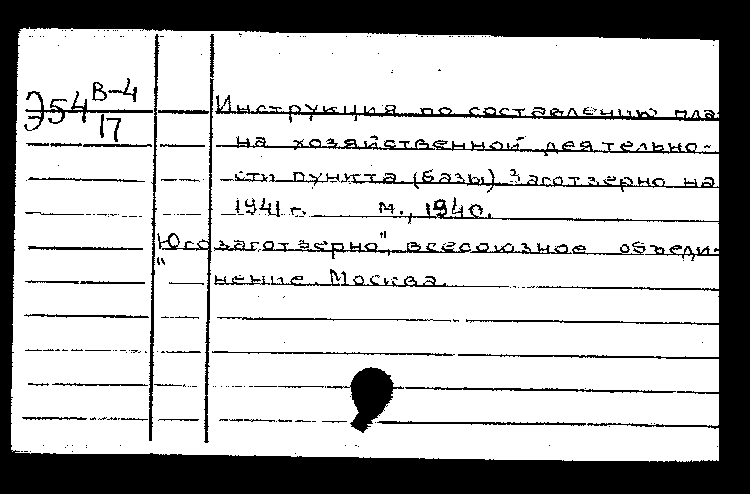 Э54 В-4
17
Инструкция по составлению пла
на хозяйственной деятельно-
сти пункта (базы) Заготзерно на
1941 г. М., 1940.
"Югозаготзерно", всесоюзное объеди-
нение. Москва.